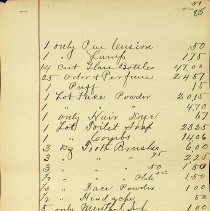 85
1 only Pin Cussion .50
1 " Lamp 1.75
14 Cut Glass Bottles 47.00
25 Odor & Perfume 24 57
1 Puff 15
1 Lot Face Powder 20 35
" " " 4.70
1 only Hair Dye 67
1 Lot Toilet Soap 23 25
" " Combs 41 06
3 Dz Tooth Brushes 6.00
3 " " " 2 25
3 " " " .50 1 50
" " 1 50
1/2 " Face Powder 1 00
1/2 " Headache 1 00
5 only Menthol